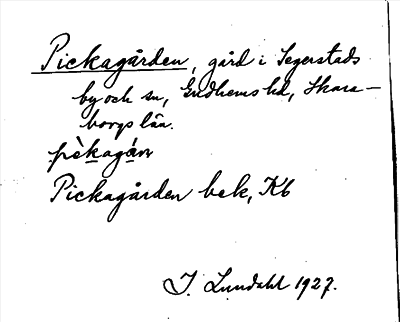 Pickagården, gård i Segerstads
by och sn, Gudhems hd, Skara-
borgs län.
pèkagá̀n
Pickagården bek, Kb
I. Lundahl 1927.